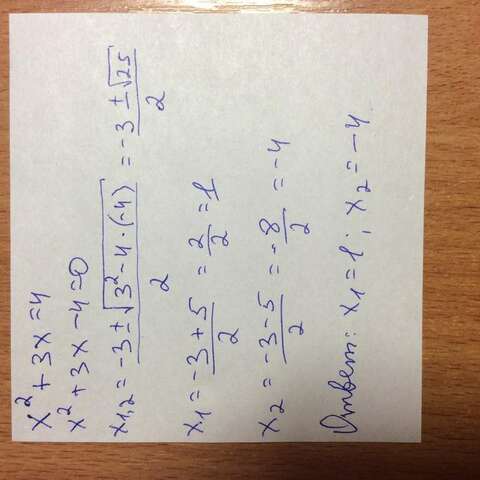 x² + 3x = 4
x² + 3x - 4 = 0
x₁,₂ = (-3 ± √(3² - 4 · (-4))) / 2 = (-3 ± √25) / 2
x₁ = (-3 + 5) / 2 = 2 / 2 = 1
x₂ = (-3 - 5) / 2 = -8 / 2 = -4
Ответ: x₁ = 1; x₂ = -4